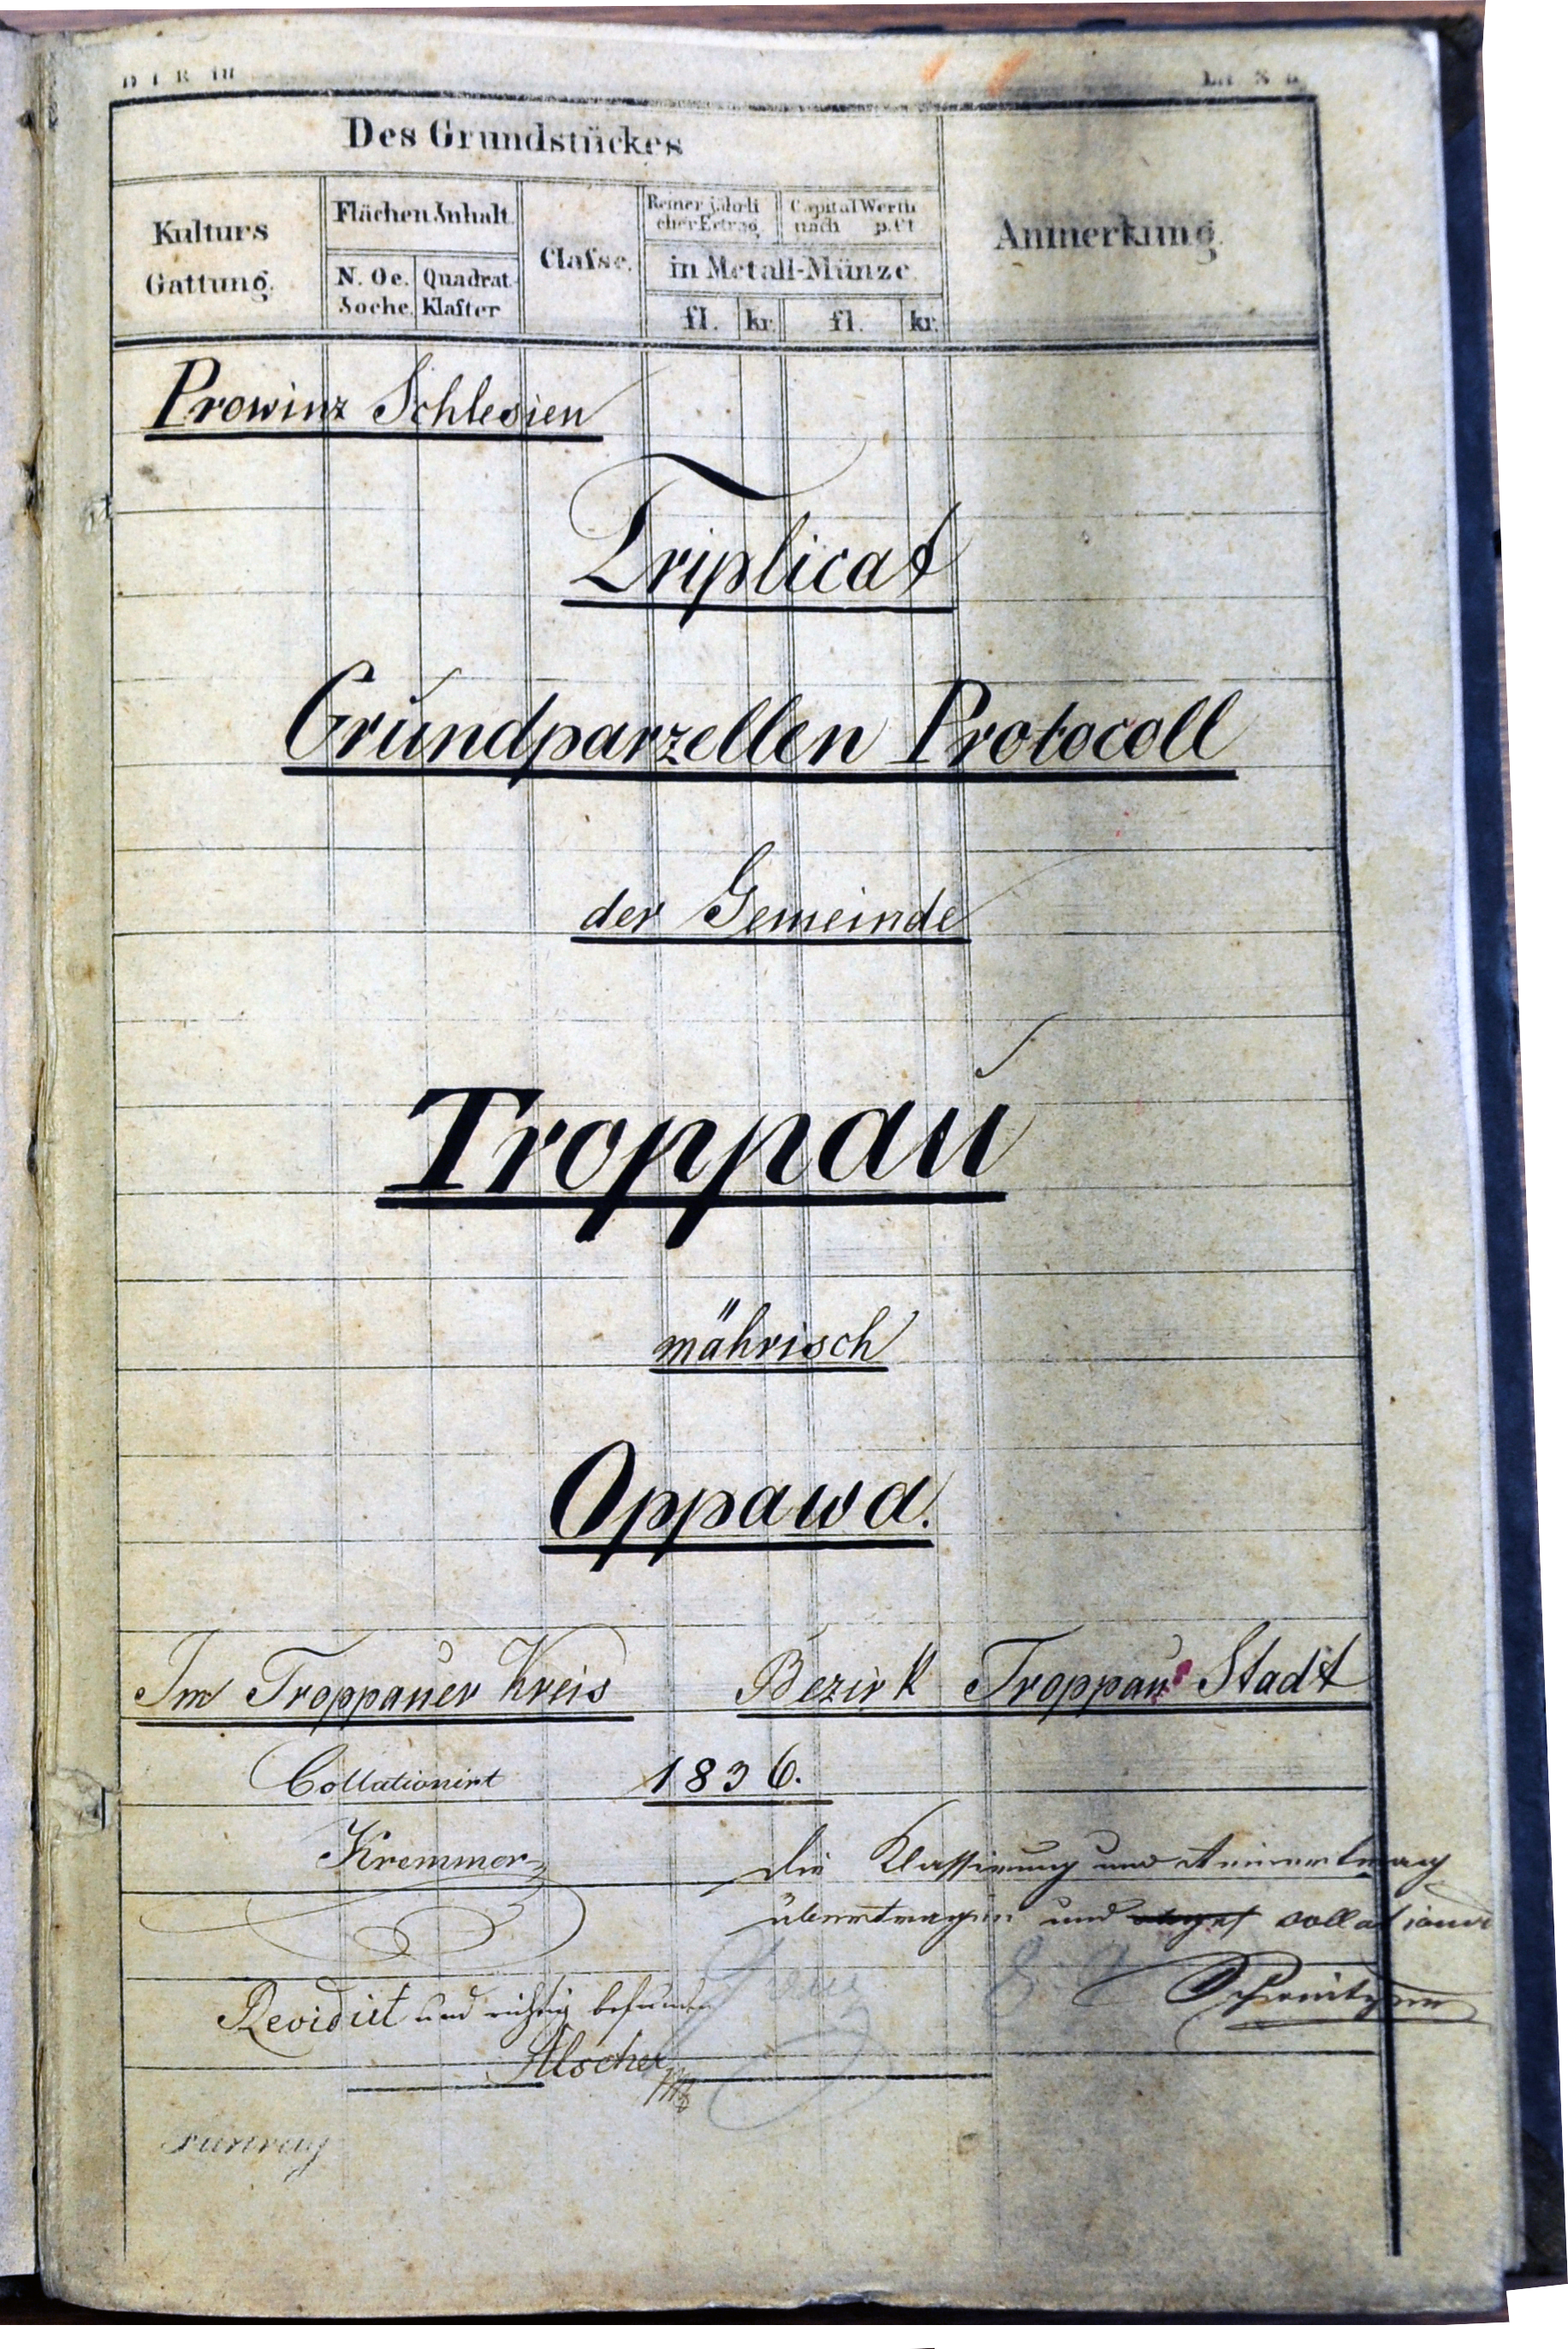 Des Grundstückes
Kulturs Gattung.
Flächen Inhalt.
N. Oe. Joche.
Quadrat-Klafter
Classe.
Reiner jährlicher Ertrag
Capital Werth nach p.Ct
in Metall-Münze.
fl. kr. fl. kr.
Anmerkung.
Prowinz Schlesien
Triplicat
Grundparzellen Protocoll
der Gemeinde
Troppau
mährisch
Oppawa.
Im Troppauer Kreis Bezirk Troppau Stadt
Collationirt 1836.
Kremmer
die Klassirung und Anmerkung
übertragen und collationirt
Revidirt und richtig befunden
Alscher